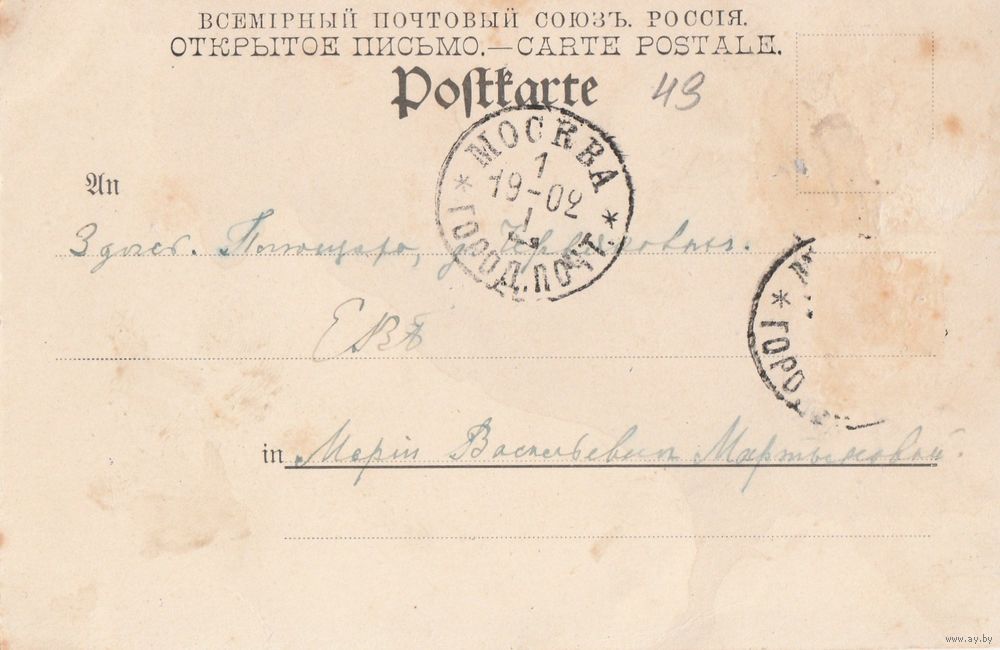 ВСЕМІРНЫЙ ПОЧТОВЫЙ СОЮЗЪ. РОССІЯ.
ОТКРЫТОЕ ПИСЬМО.—CARTE POSTALE.
Postkarte 49
МОСКВА
1
19-02
I
ГОРОД. ПОЧТ.
An
Здѣсь.
ЕВБ
ГОРОД
in Маріи Васильевнѣ Мартыновой.
www.ay.by